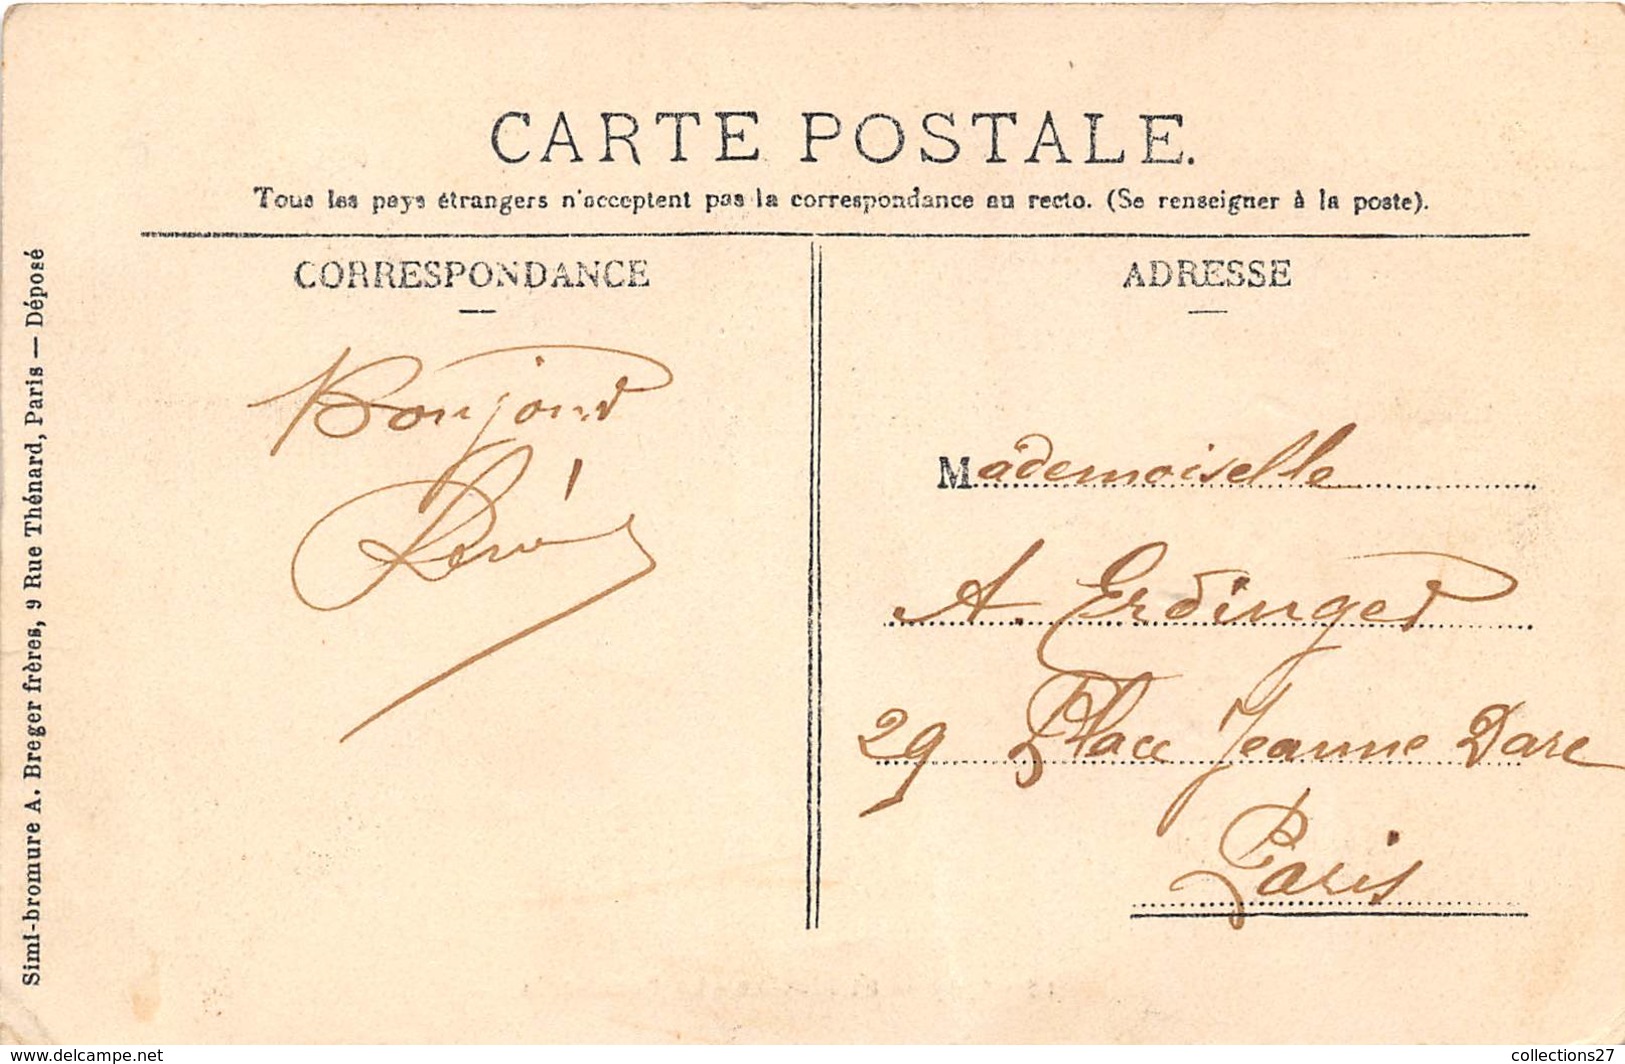 CARTE POSTALE.
Tous les pays étrangers n'acceptent pas la correspondance au recto. (Se renseigner à la poste).
CORRESPONDANCE
Bonjour
René
ADRESSE
Mademoiselle
A. Erdinger
29 Place Jeanne Darc
Paris
Simi-bromure A. Breger frères, 9 Rue Thénard, Paris — Déposé
www.delcampe.net
collections27